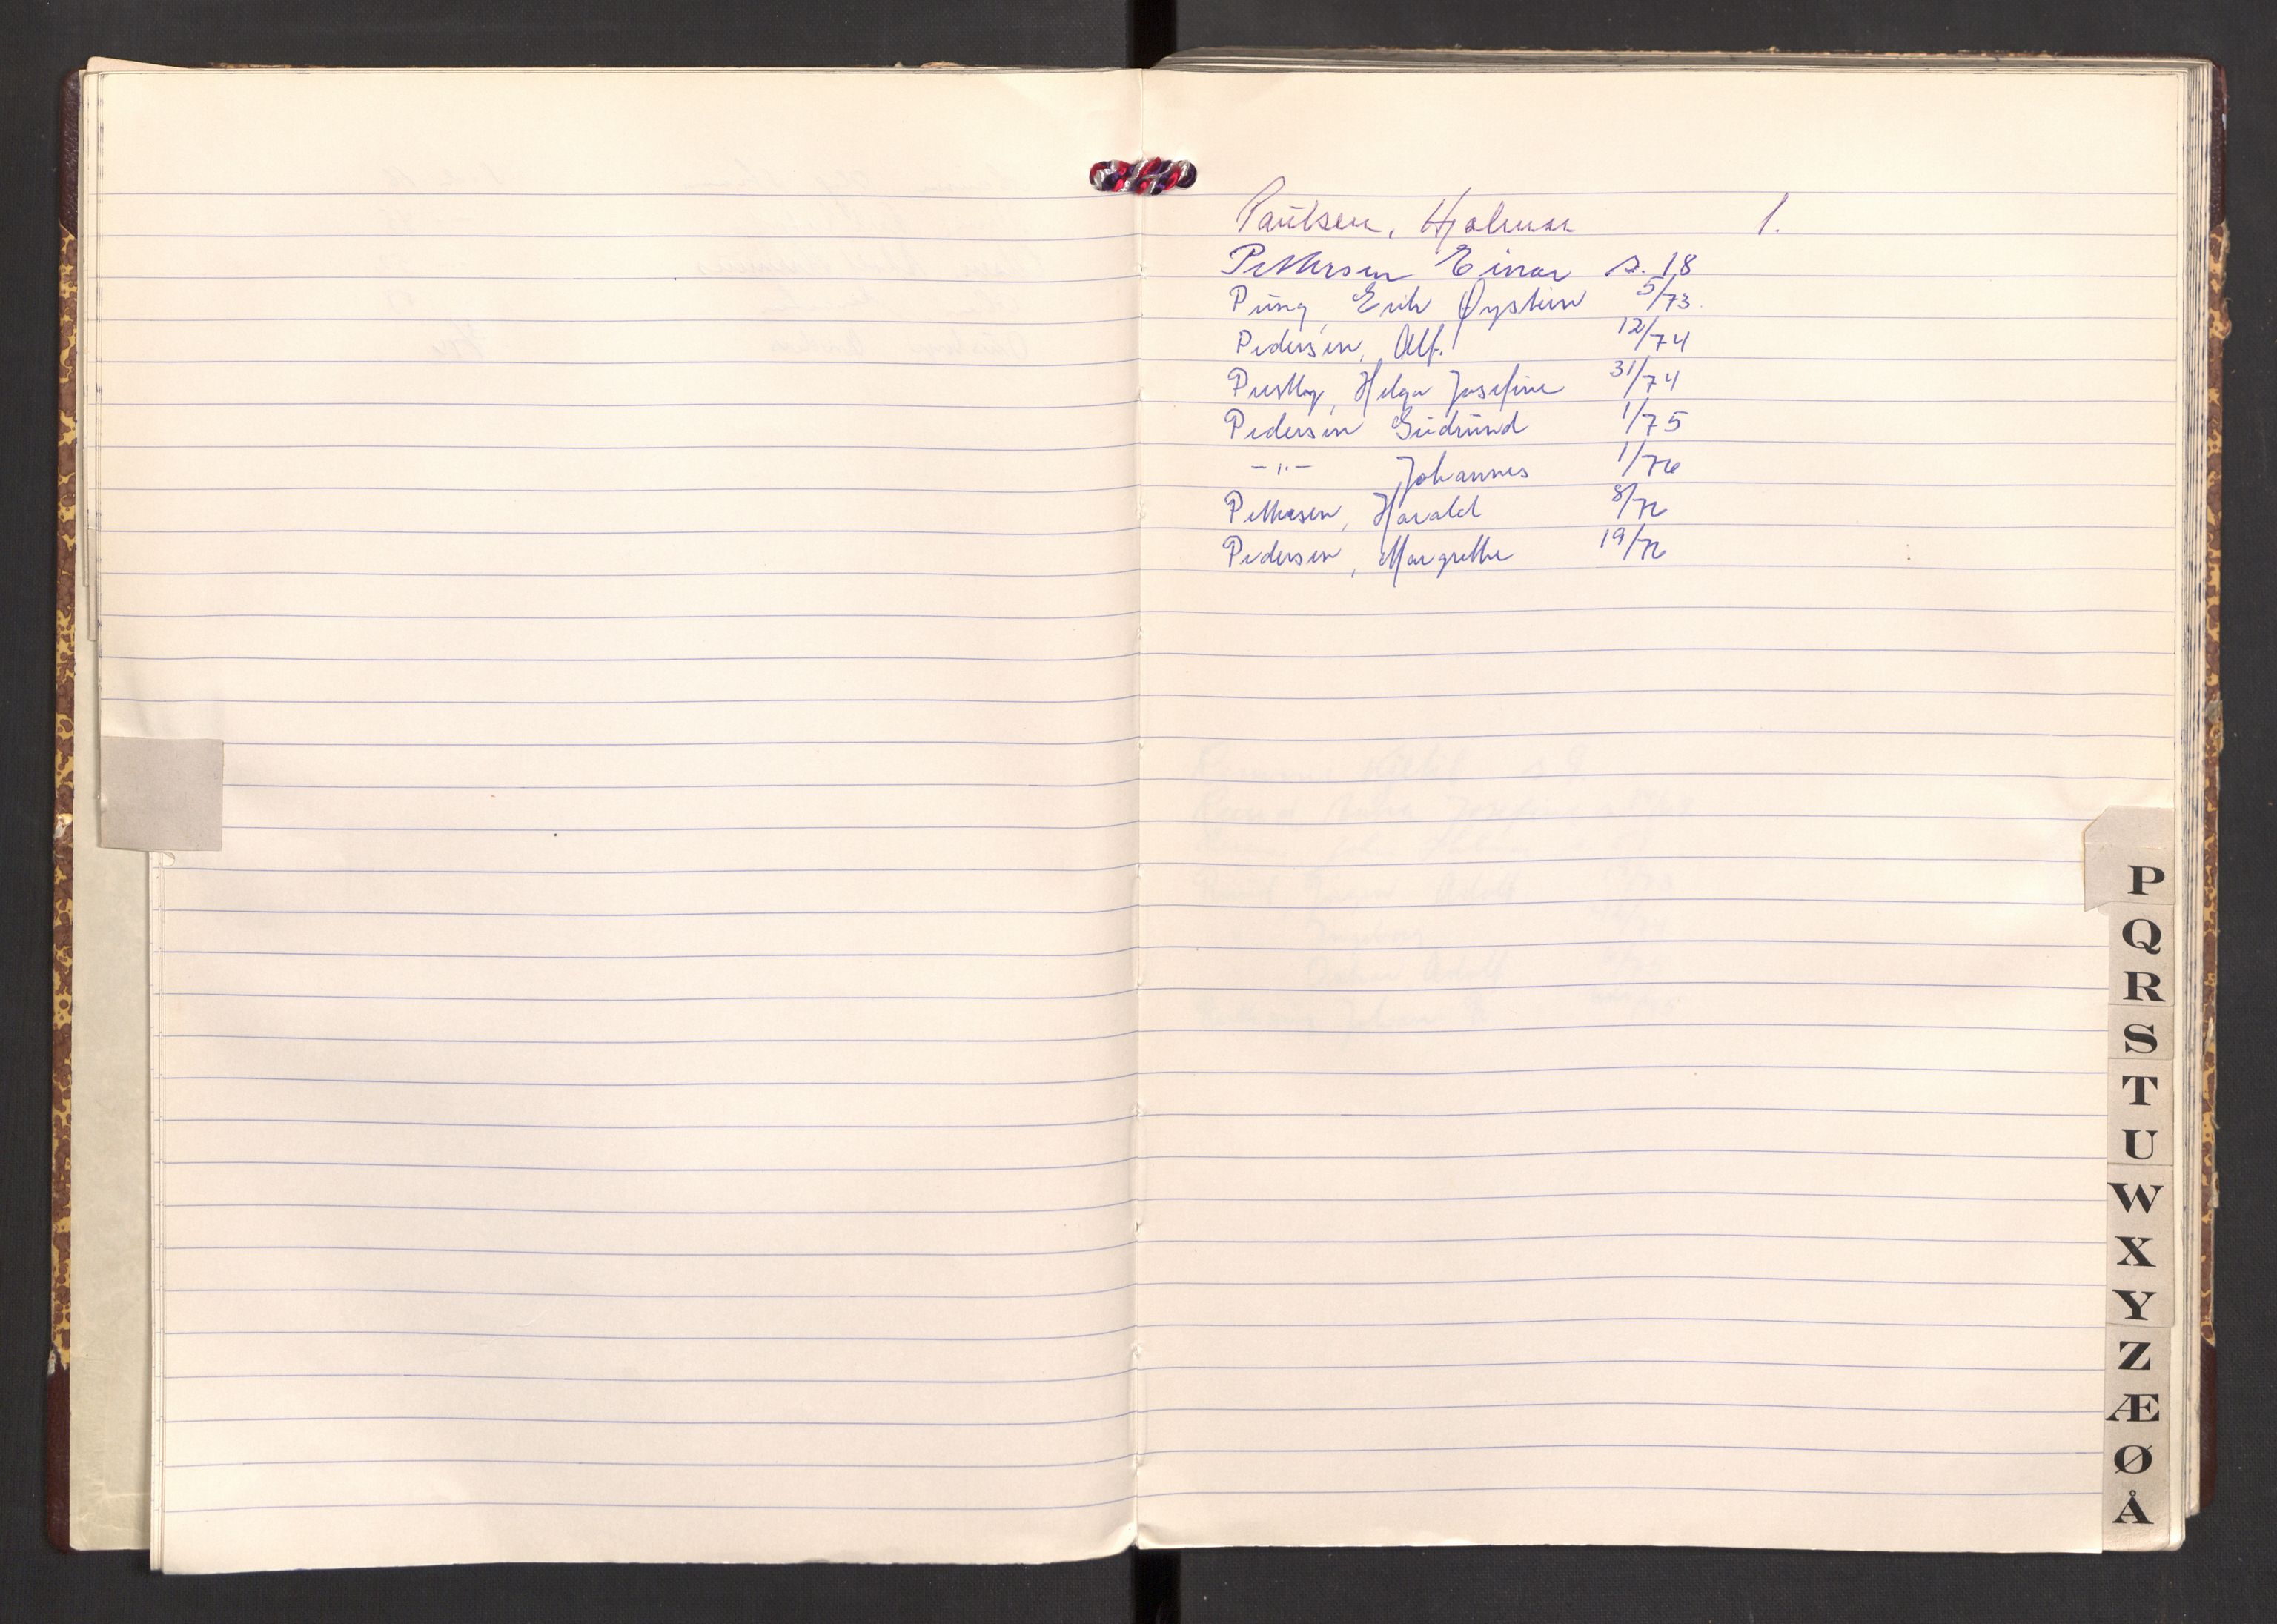 Paulsen, Hjalmar 1.
Pettersen Einar s. 18
Pung, Erik Øystein 5/73.
Pedersen, Alf. 12/74
Helga Josefine 31/74
Pedersen Gudrund 1/75
-"- Johannes 1/76
Pettersen, Harald 8/76
Pedersen, Margrethe 19/76
P
Q
R
S
T
U
W
X
Y
Z
Æ
Ø
Å